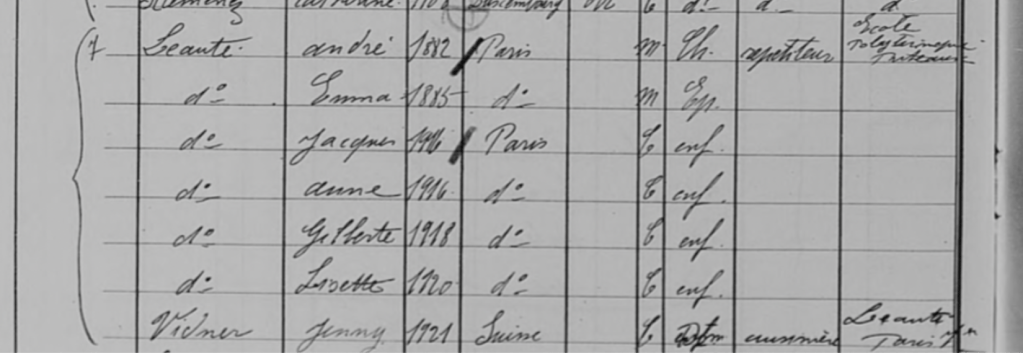 Luxembourg d° d d
7 Leauté andré 1882 Paris m Ch. repetiteur Ecole Polytechnique Puteaux
d° Emma 1885 d° m Ep.
d° Jacques 1916 Paris C enf.
d° anne 1916 d° C enf.
d° Gilberte 1918 d° C enf.
d° Lisette 1920 d° C enf.
Vidner Jenny 1921 Suisse C cuisinière Leauté Paris